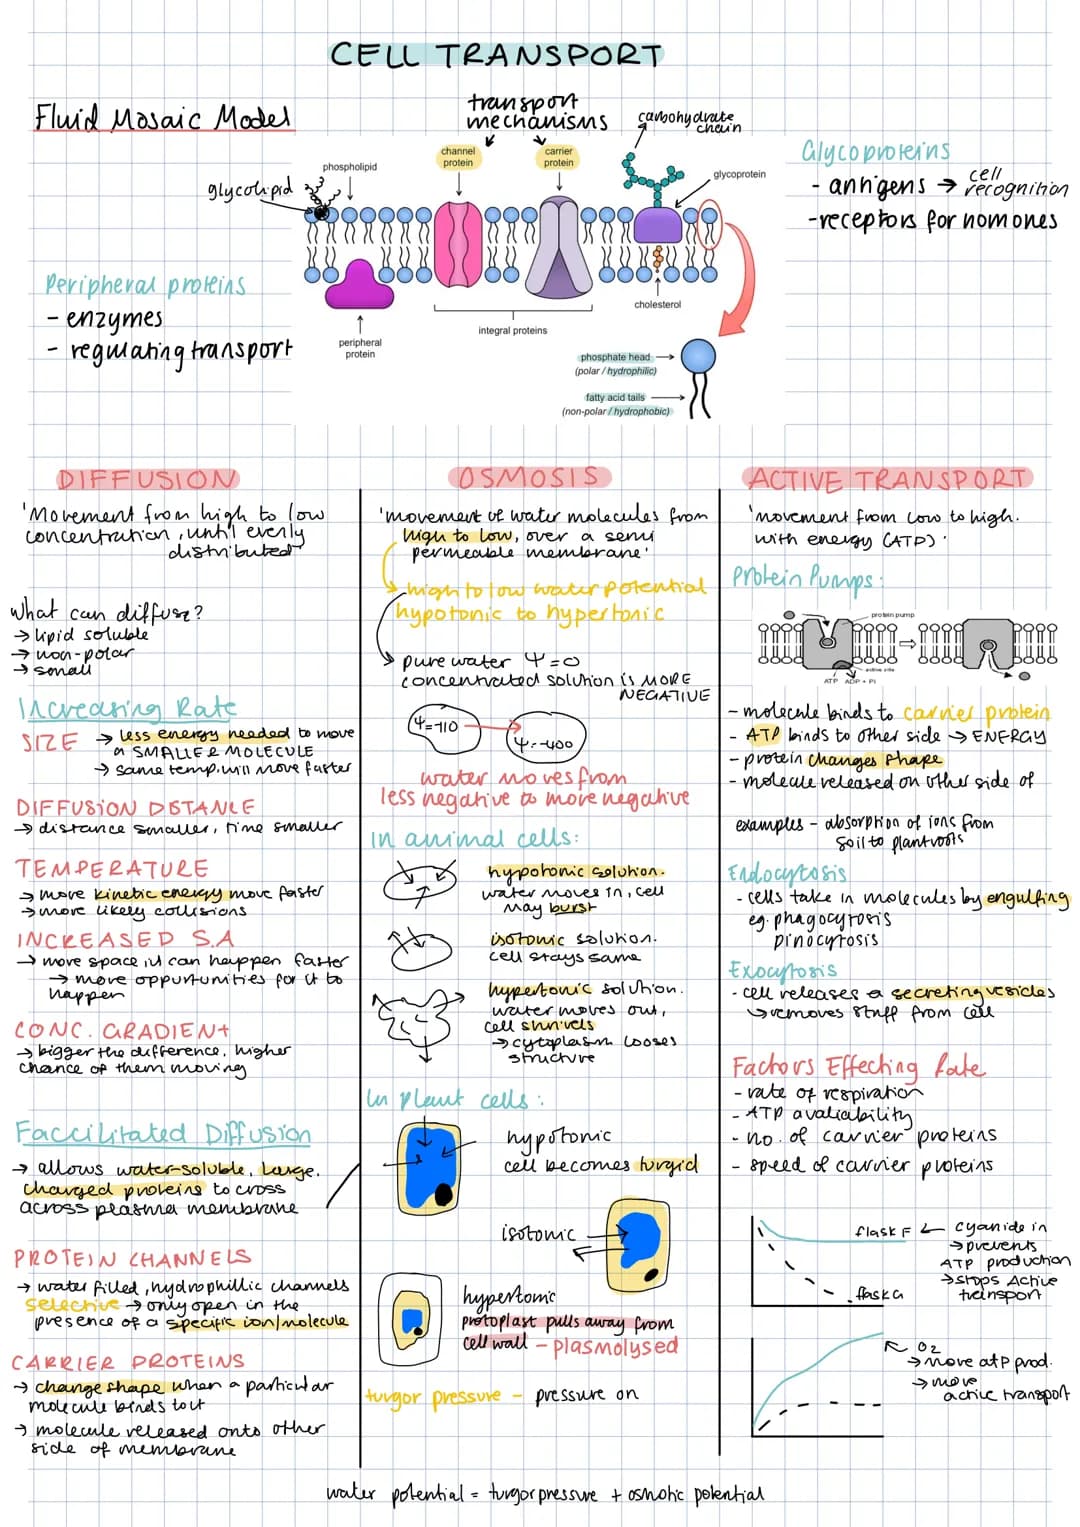 CELL TRANSPORT
Fluid Mosaic Model
transport
mechanisms
carbohydrate
chain
channel
protein
carrier
protein
phospholipid
glycolipid
glycoprotein
Glycoproteins
- antigens → cell
recognition
- receptors for homones
Peripheral proteins
- enzymes
- regulating transport
peripheral
protein
integral proteins
cholesterol
phosphate head
(polar / hydrophilic)
fatty acid tails
(non-polar / hydrophobic)
DIFFUSION
'Movement from high to low
concentration, until evenly
distributed'
What can diffuse?
→ lipid soluble
→ non-polar
→ small
Increasing Rate
SIZE → less energy needed to move
a SMALLER MOLECULE
→ same temp. will move faster
DIFFUSION DISTANCE
→ distance smaller, time smaller
TEMPERATURE
→ more kinetic energy move faster
→ more likely collisions
INCREASED S.A
→ more space it can happen faster
→ more oppurtunities for it to
happen
CONC. GRADIENT
→ bigger the difference, higher
chance of them moving
Faccilitated Diffusion
→ allows water-soluble, large,
charged proteins to cross
across plasma membrane
PROTEIN CHANNELS
→ water filled, hydrophillic channels
selective → only open in the
presence of a specific ion/molecule
CARRIER PROTEINS
→ change shape when a particular
molecule binds to it
→ molecule released onto other
side of membrane
OSMOSIS
'movement of water molecules from
high to low, over a semi
permeable membrane'
high to low water potential
hypotonic to hypertonic
pure water Ψ=0
concentrated solution is MORE
NEGATIVE
Ψ=-110
Ψ=-400
water moves from
less negative to more negative
In animal cells:
hypotonic solution.
water moves in, cell
may burst
isotonic solution.
cell stays same
hypertonic solution.
water moves out,
cell shrivels
→ cytoplasm looses
structure
In plant cells:
hypotonic
cell becomes turgid
isotonic
hypertonic
protoplast pulls away from
cell wall - plasmolysed
turgor pressure - pressure on
ACTIVE TRANSPORT
'movement from low to high.
with energy (ATP)'
Protein Pumps:
protein pump
active site
ATP ADP + Pi
- molecule binds to carrier protein
- ATP binds to other side → ENERGY
- protein changes shape
- molecule released on other side of
examples - absorption of ions from
soil to plant roots
Endocytosis
- cells take in molecules by engulfing
eg. phagocytosis
pinocytosis
Exocytosis
- cell releases a secreting vesicles
→ removes stuff from cell
Factors Effecting Rate
- rate of respiration
- ATP avaliability
- no. of carrier proteins
- speed of carrier proteins
flask F ← cyanide in
→ prevents
ATP production
→ stops Active
transport
flask G
O2
→ more atp prod.
→ more
active transport
water potential = turgor pressure + osmotic potential